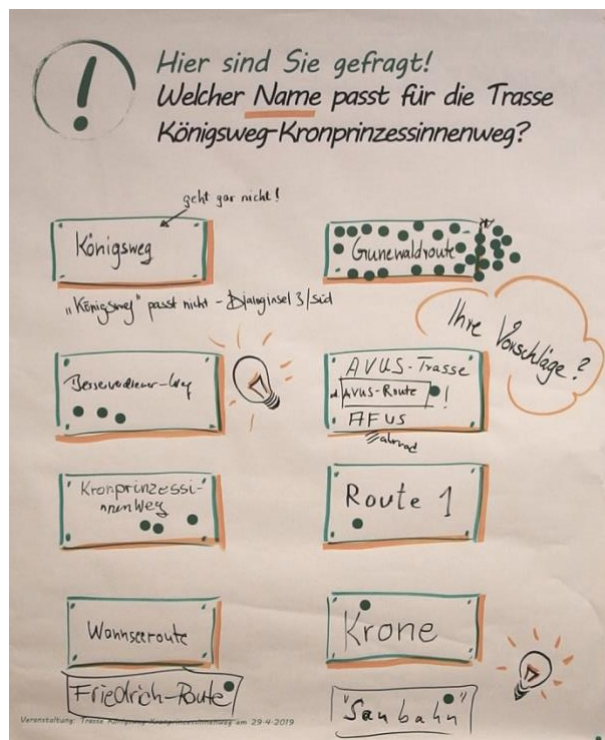 !
Hier sind Sie gefragt!
Welcher Name passt für die Trasse
Königsweg-Kronprinzessinnenweg?
geht gar nicht!
Königsweg
Grunewaldroute
„Königsweg" passt nicht - Dialoginsel 3/Süd
Ihre Vorschläge?
Besserverdiener-Weg
AVUS-Trasse
AVUS-Route !
AFUS
ahrrad
Kronprinzessi-
nnenweg
Route 1
Wannseeroute
Krone
Friedrich-Route
"Saubahn"
Veranstaltung: Trasse Königsweg Kronprinzessinnenweg am 29.4.2019